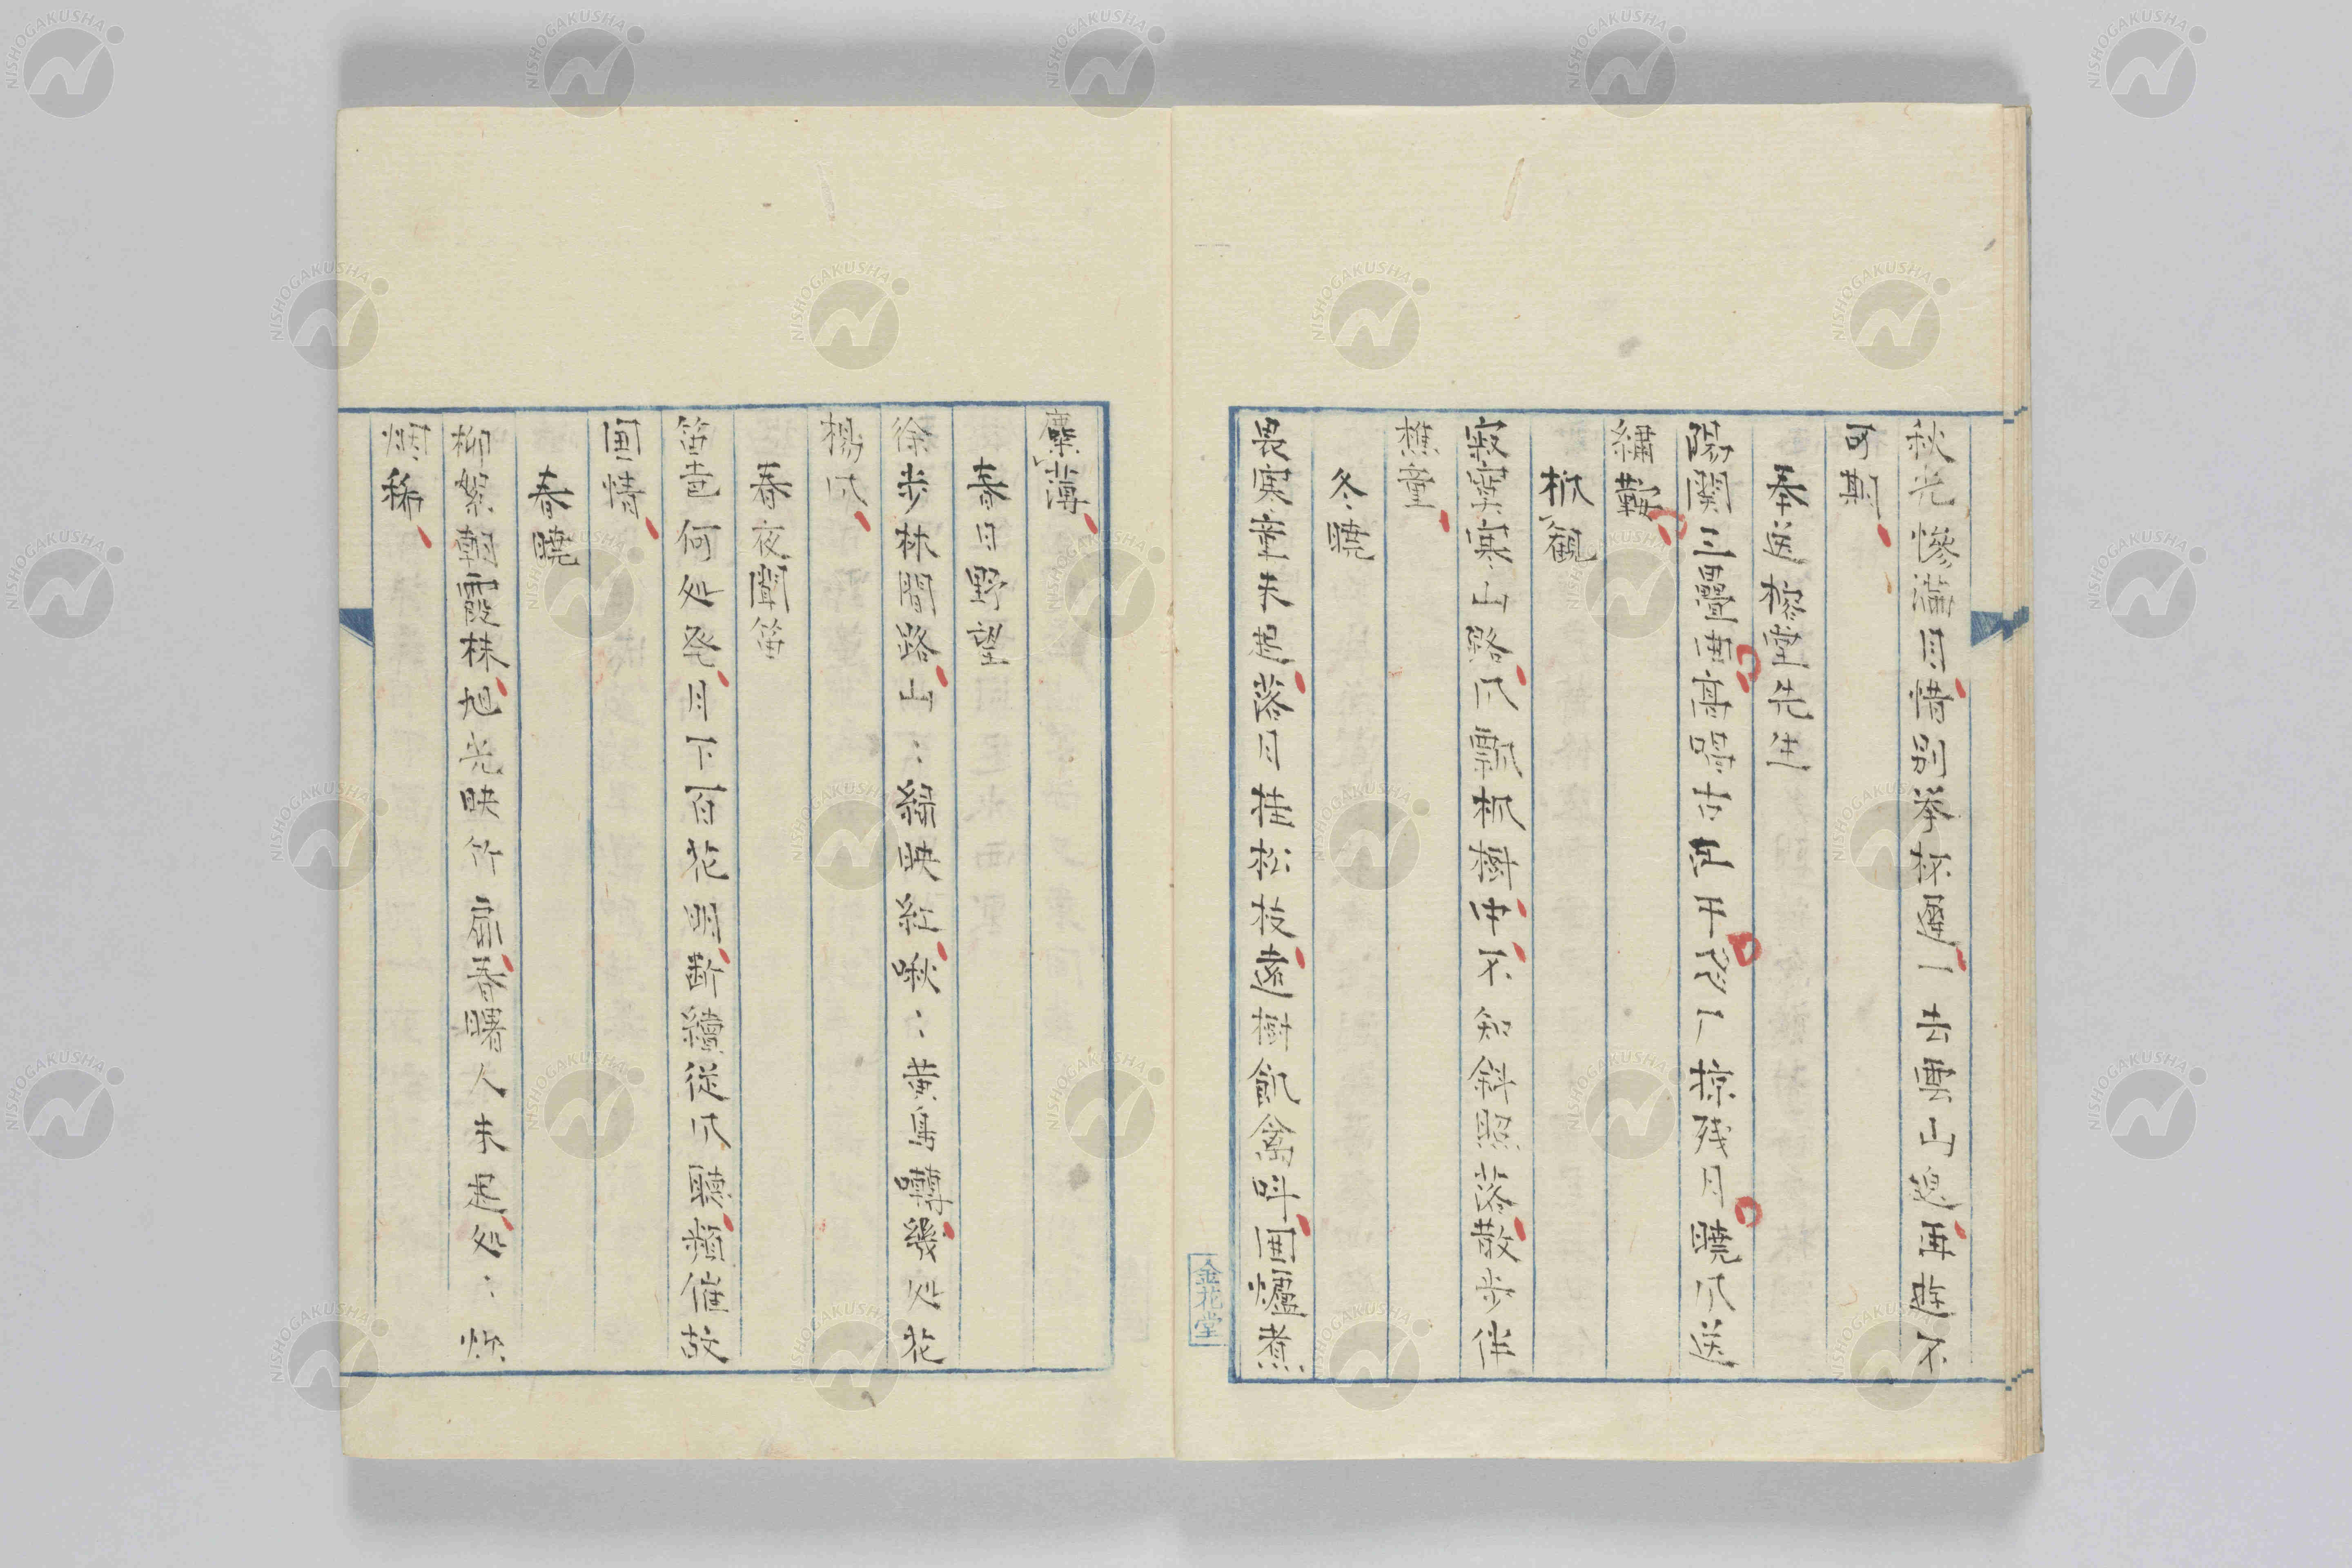 秋光惨満目惜別挙杯遅一去雲山急再遊不
可期
奉送榕堂先生
陽関三疊画亭詩古駅
掠残月暁爪送
繡鞍
枫観
寂寞寒山路爪飄枫樹中不知斜照落散歩伴
樵童
冬暁
畏寒童未起落月挂松枝遠樹飢禽叫囲爐煮
糜薄
春日野望
徐歩林間路山〻緑映紅啾〻黄鳥囀幾処花
楊爪
春夜聞笛
笛声何処発月下百花明断續従爪聴頻催故
園情
春暁
柳絮朝霞株旭光映竹扉春曙人未起処〻炊
烟稀
金花堂
NISHOGAKUSHA